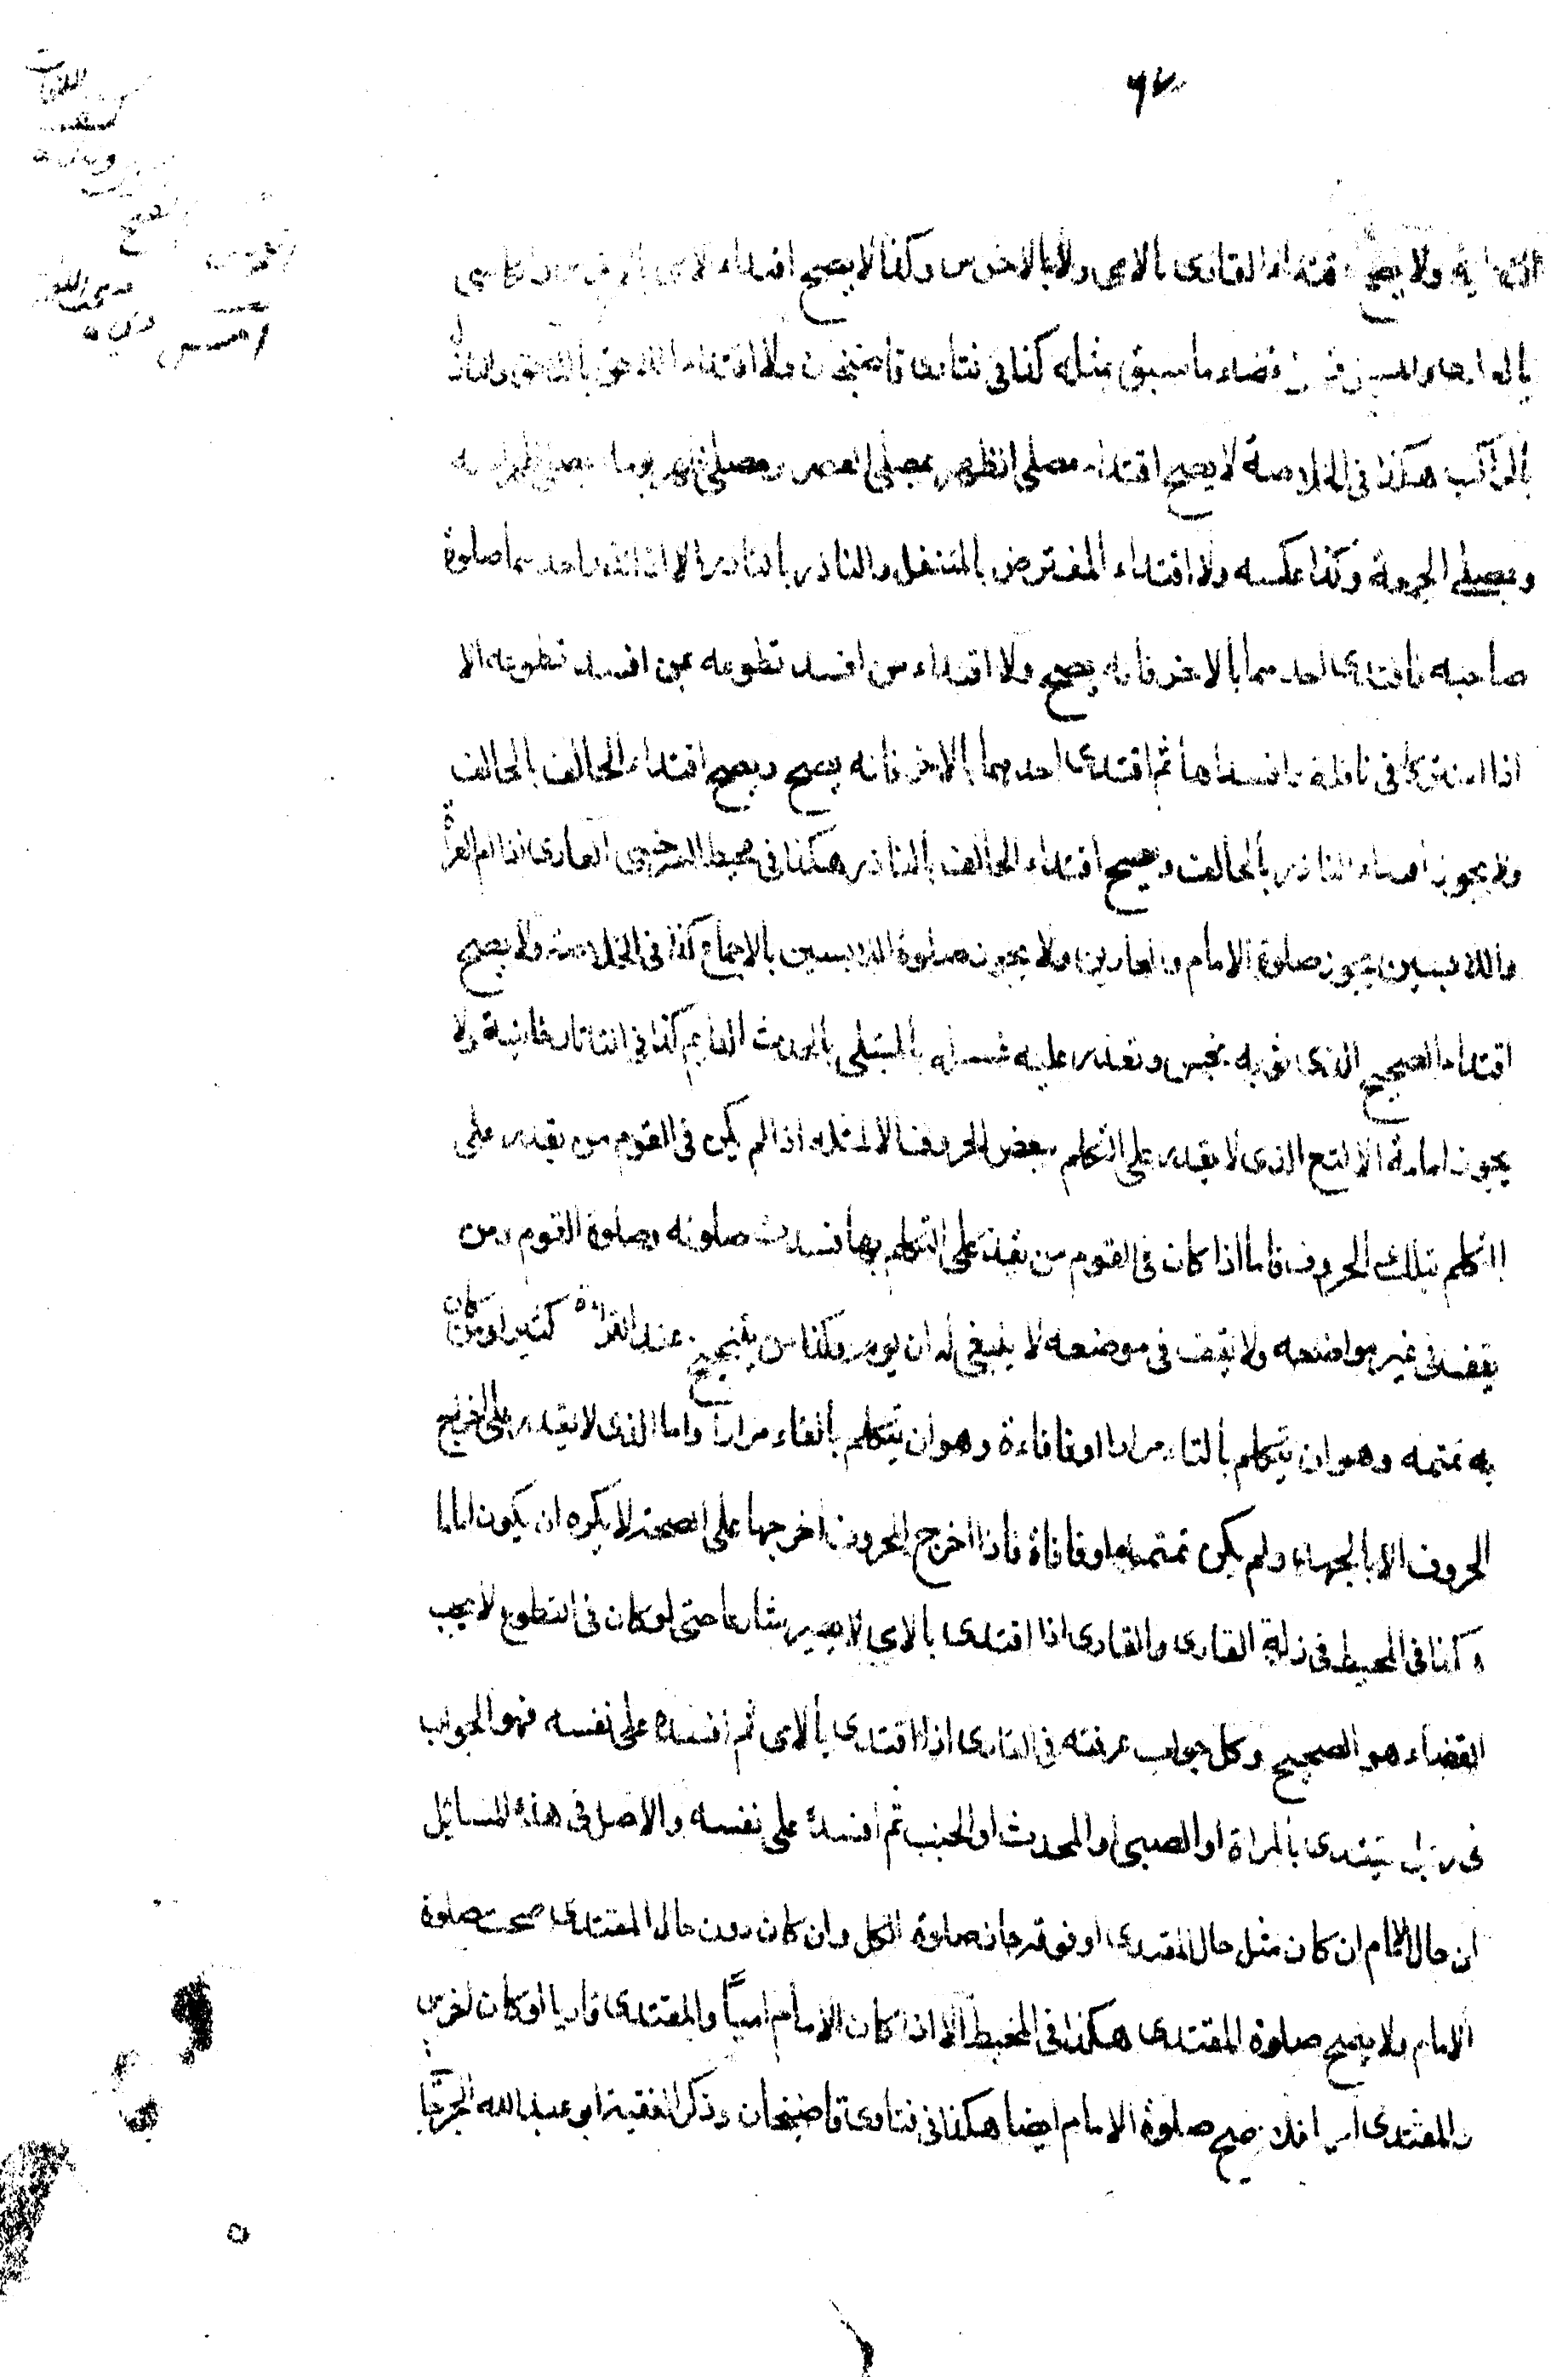 ولا يصح اقتداء القارى بالامى ولا بالاخرس وكذا لا يصح اقتداء الامى
قضاء ما سبق بمثله كذا فى فتاوى قاضيخان ولا اقتداء اللاحق باللاحق
بالراكب هكذا فى الخلاصة لا يصح اقتداء مصلى الظهر بمصلى العصر ومصلى
وبمصلى الجمعة وكذا عكسه ولا اقتداء المفترض بالمتنفل والناذر بالناذر الا اذا نذر احدهما صلوة
صاحبه فاقتدى احدهما بالاخر فانه يصح ولا اقتداء من افسد تطوعه بمن افسد تطوعه الا
اذا اشتركا فى نافلة وافسداها ثم اقتدى احدهما بالاخر فانه يصح ويصح اقتداء الحالف بالحالف
ولا يجوز اقتداء الناذر بالحالف ويصح اقتداء الحالف بالناذر هكذا فى محيط السرخسى العارى اذا ام العراة
واللابسين يجوز صلوة الامام والعارين ولا يجوز صلوة اللابسين بالاجماع كذا فى الخلاصة ولا يصح
اقتداء الصحيح الذى ثوبه نجس وتعذر عليه غسله بالمبتلى بالحدث الدايم كذا فى التاتارخانية ولا
يجوز امامة الالثغ الذى لا يقدر على التكلم ببعض الحروف الا لمثله اذا لم يكن فى القوم من يقدر على
التكلم بتلك الحروف فاما اذا كان فى القوم من يقدر على التكلم بها فسدت صلوته وصلوة القوم ومن
يقف فى غير مواضعه ولا يقف فى موضعه لا ينبغى له ان يوم وكذا من يتنحنح عند القراءة كثيرا ومن كان
به تمتمه وهو ان يتكلم بالتاء مرارا او فافاءة وهو ان يتكلم بالفاء مرارا واما الذى لا يقدر على اخراج
الحروف الا بالجهد ولم يكن تمتمة او فافاة فاذا اخرج الحروف اخرجها على الصحة لا يكره ان يكون اماما
كذا فى المحيط فى زلة القارى والقارى اذا اقتدى بالامى لا يصير شارعا حتى لو كان فى التطوع لا يجب
القضاء هو الصحيح وكل جواب عرفته فى القارى اذا اقتدى بالامى ثم افسده على نفسه فهو الجواب
فى رجل يقتدى بالمراة او الصبى او المحدث او الجنب ثم افسده على نفسه والاصل فى هذه المسائل
ان حال الامام ان كان مثل حال المقتدى او فوقه جاز صلوة الكل وان كان دون حال المقتدى صحت صلوة
الامام ولا يصح صلوة المقتدى هكذا فى المحيط الا اذا كان الامام اميًا والمقتدى قاريا او كان اخرس
والمقتدى اميا فلا يصح صلوة الامام ايضا هكذا فى فتاوى قاضيخان وذكر الفقيه ابو عبد الله الجرجا